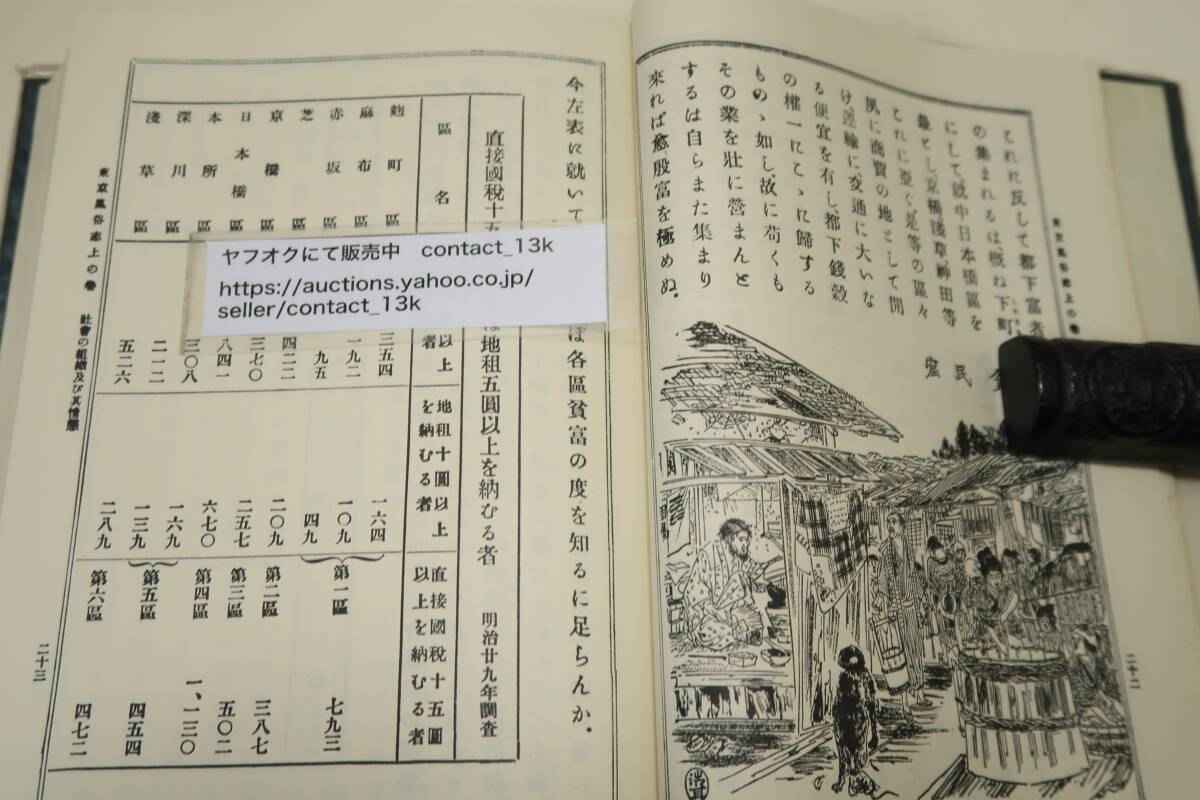 東京風俗志上の卷
これに反して都下富者
の集まれるは、概ね下町
にして、就中日本橋區を
最とし、京橋淺草神田等
これに亞ぐ。是等の區々
夙に商賈の地として開
け、運輸に、交通に大いな
る便宜を有し、都下錢穀
の權一にこゝに歸する
ものゝ如し、故に苟くも
その業を壯に營まんと
するは自らまた集まり
來れば愈殷富を極めぬ。
民窟
二十二
今左表に就いて
ぼ各區貧富の度を知るに足らんか。
直接國稅十五
は地租五圓以上を納むる者 明治廿九年調査
區名
以上
者
地租十圓以上
を納むる者
直接國稅十五圓
以上を納むる者
麴町區 三五四 一六四
麻布區 一九二 一〇九
赤坂區 九五 四九
第一區 七九三
芝區 四二二 二〇九 第二區 三八七
京橋區 三七〇 二五七 第三區 五〇二
日本橋區 八四一 六七〇 第四區 一、一三〇
本所區 三〇八 一六九
深川區 二一二 一三九
第五區 四五四
淺草區 五二六 二八九 第六區 四七二
東京風俗志上の卷 社會の組織及び其情態
二十三
ヤフオクにて販売中 contact_13k
https://auctions.yahoo.co.jp/
seller/contact_13k